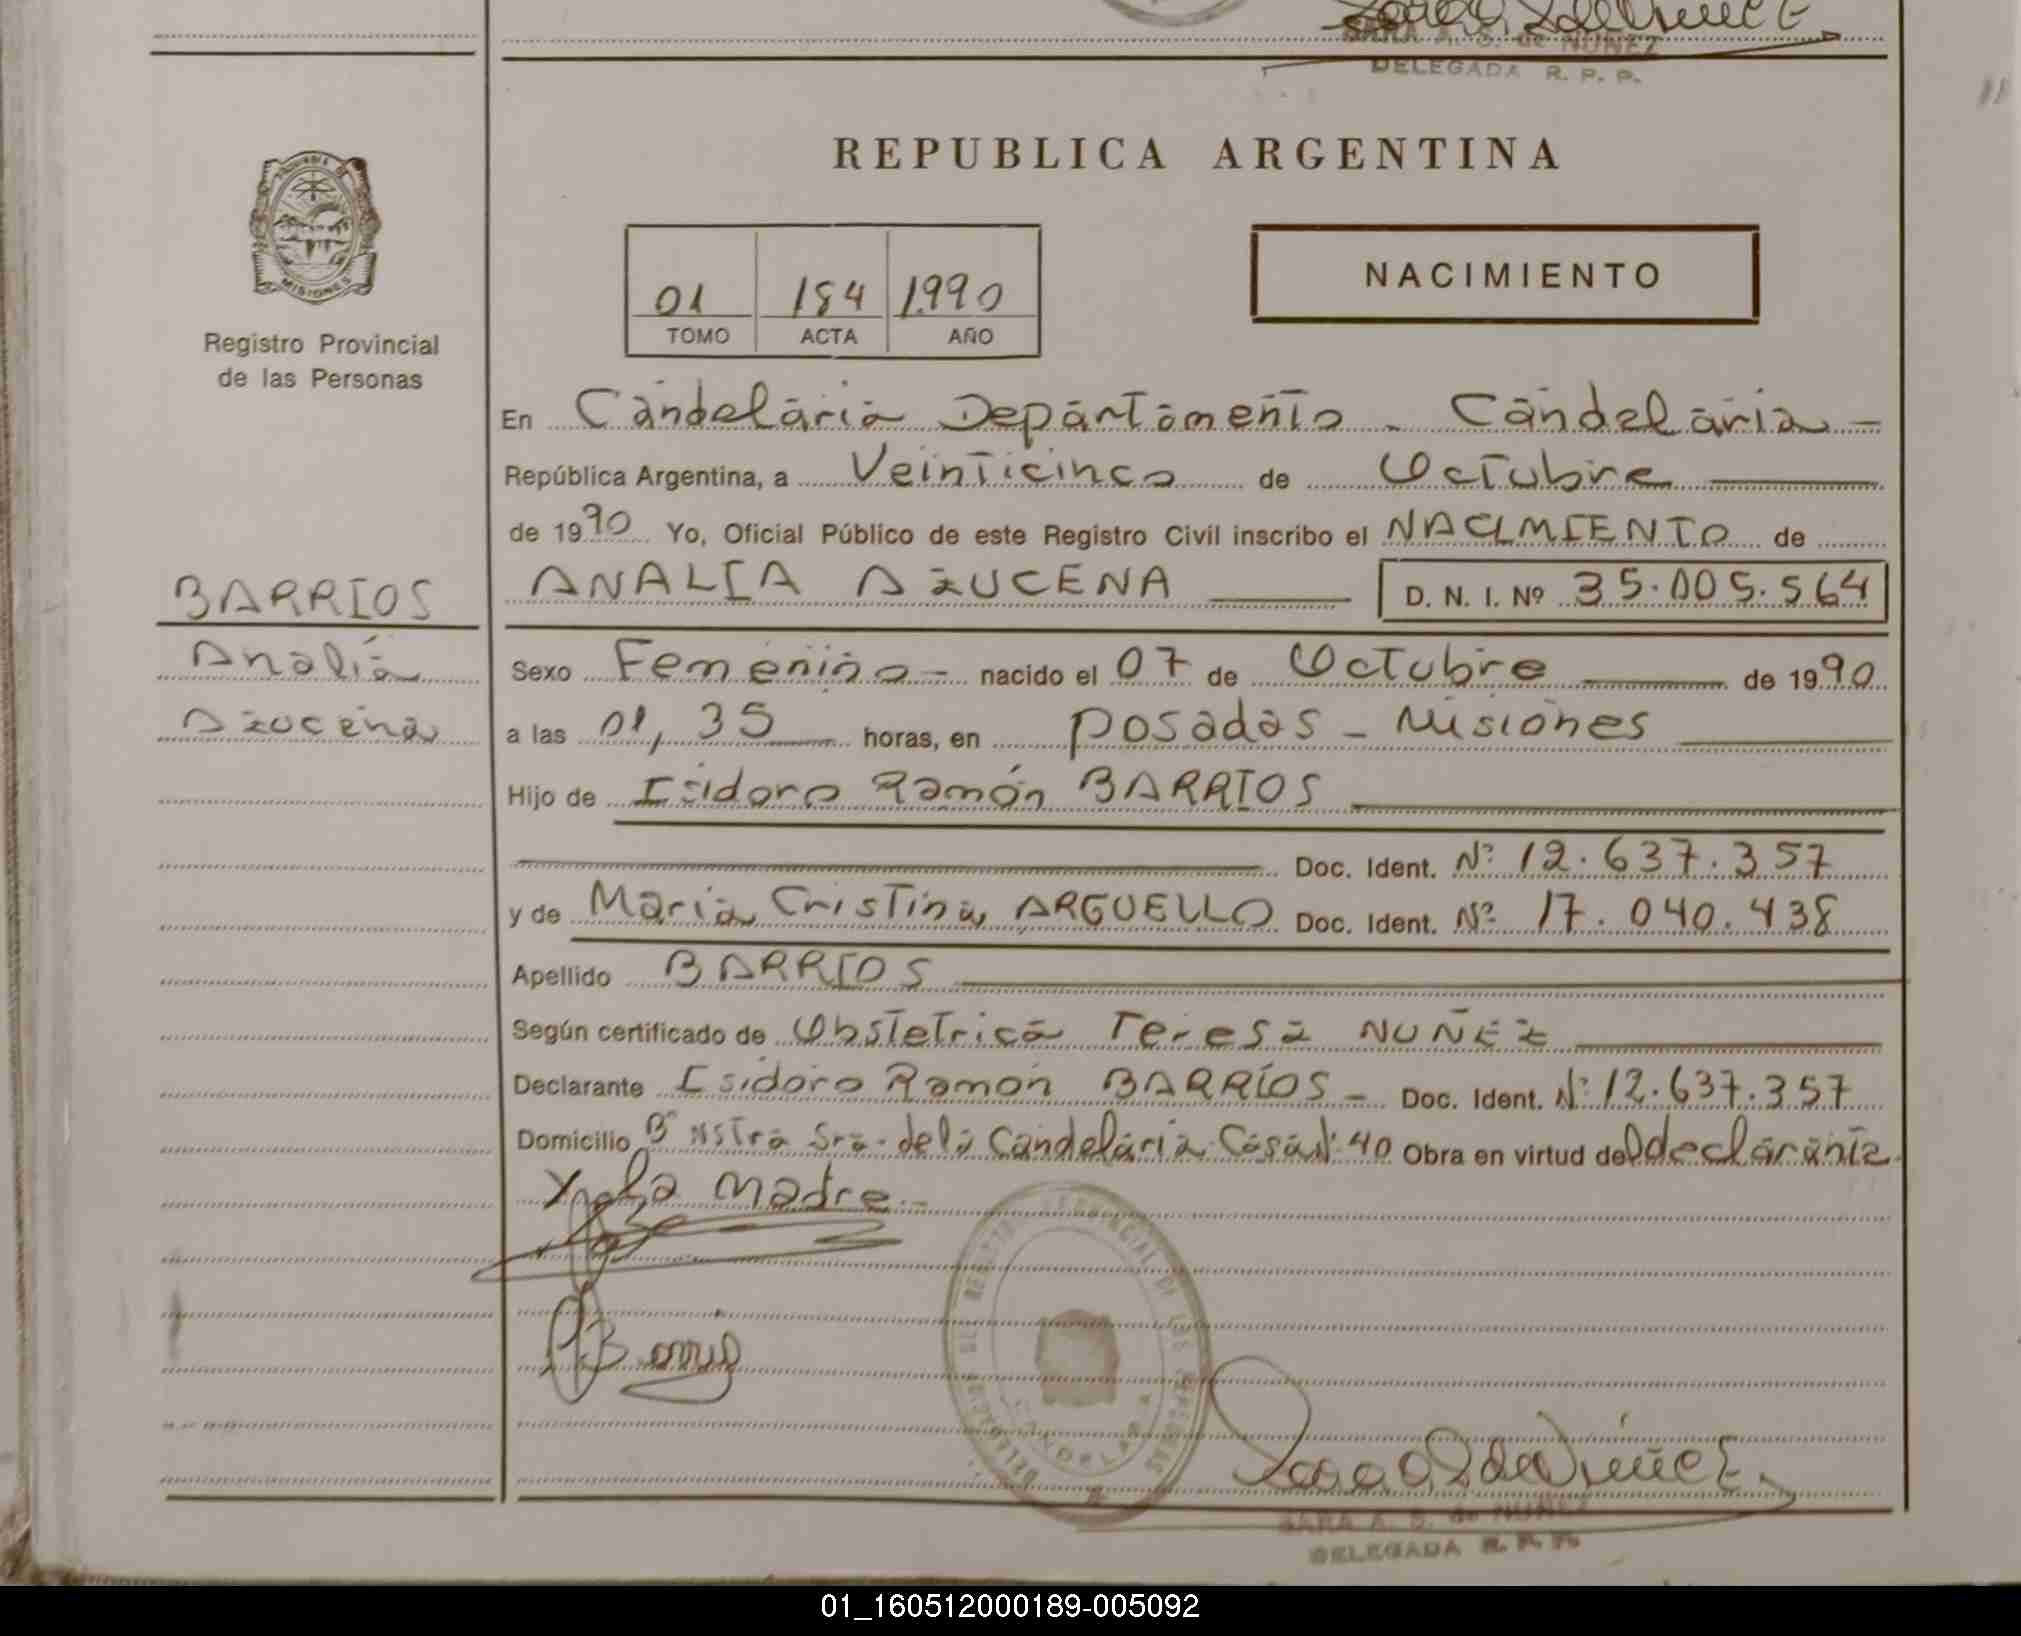 SARA A. S. de NUÑEZ
DELEGADA R. P. P.
REPUBLICA ARGENTINA
PROVINCIA DE
MISIONES
Registro Provincial
de las Personas
01 184 1.990
TOMO ACTA AÑO
NACIMIENTO
En Candelaria Departamento - Candelaria -
República Argentina, a Veinticinco de Octubre
de 1990 Yo, Oficial Público de este Registro Civil inscribo el NACIMIENTO de
ANALIA AZUCENA D. N. I. Nº 35.005.564
BARRIOS
Analía
Azucena
Sexo Femenino - nacido el 07 de Octubre de 1990
a las 01,35 horas, en Posadas - Misiones
Hijo de Isidoro Ramón BARRIOS
Doc. Ident. Nº 12.637.357
y de María Cristina ARGUELLO Doc. Ident. Nº 17.040.438
Apellido BARRIOS
Según certificado de Obstetrica Teresa NUÑEZ
Declarante Isidoro Ramón BARRIOS - Doc. Ident. Nº 12.637.357
Domicilio Bº Nstra Sra. de la Candelaria Casa Nº 40 Obra en virtud del declarante
y la madre.-
SARA A. S. de NUÑEZ
DELEGADA R. P. P.
01_160512000189-005092